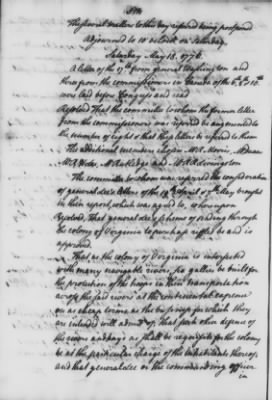 The several matters to this day referred being postponed
Adjourned to 10 o'Clock on Saturday.
Saturday May 18. 1776
A letter of the 17th from general Washington and
three from the commissioners in Canada of the 6th 8th & 10th
were laid before Congress and read
Resolved That the committee to whom the former letters
from the commissioners was referred be augmented to
the number of eight & that these letters be referred to them
The additional members chosen Mr R. Morris, Mr Duane
Mr Hewes, Mr Rutledge and Mr R. R. Livingston
The committee to whom was referred the consideration
of general Lee's letters of the April & May brought
in their report, which was agreed to, whereupon
Resolved, That general Lee's scheme of sending through
the colony of Virginia to purchase rifles be and is
approved.
That as the colony of Virginia is intersected
with many navigable rivers, six gallies be built for
the protection of the troops in their transportation
across the said rivers at the continental expence
on as cheap terms as the business for which they
are intended will admit of; That such other defence of
the rivers and bays as shall be requisite for the colony
be at the particular charge of the inhabitants thereof;
and that general Lee or the commanding officer
in